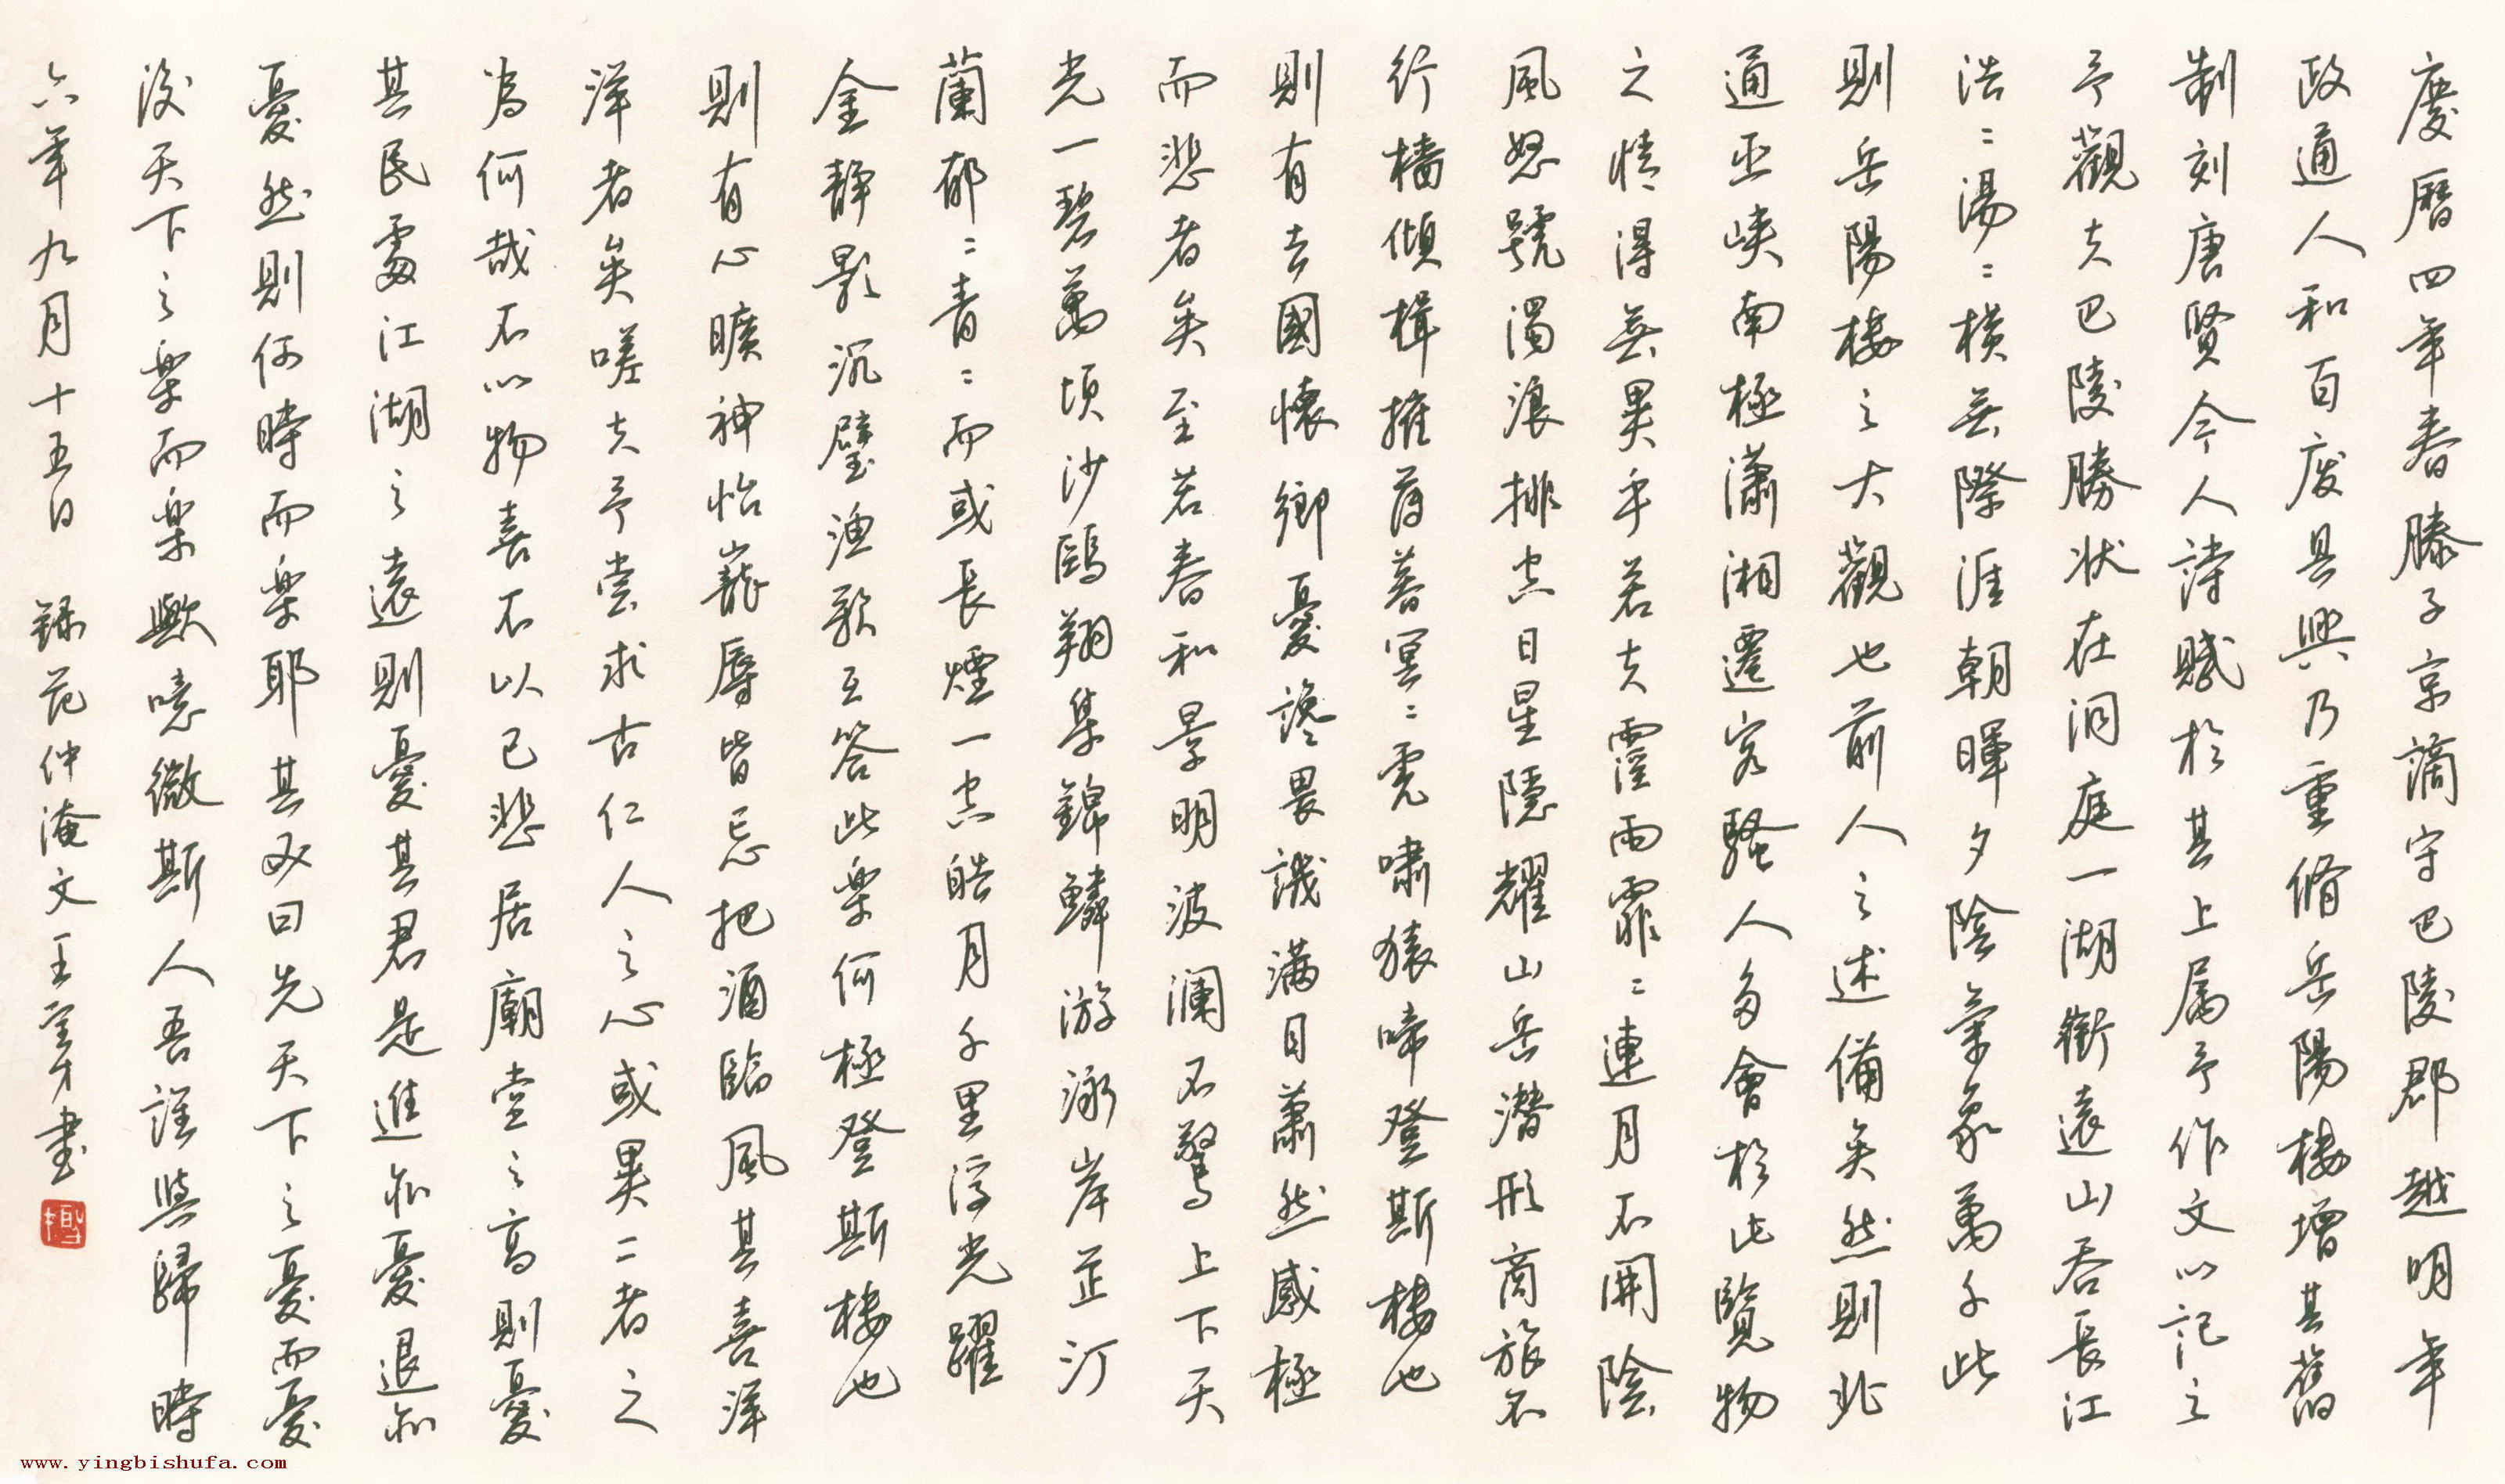 慶曆四年春滕子京謫守巴陵郡越明年
政通人和百廢具興乃重脩岳陽樓增其舊
制刻唐賢今人詩賦於其上属予作文以記之
予觀夫巴陵勝狀在洞庭一湖銜遠山吞長江
浩〻湯〻橫無際涯朝暉夕陰氣象萬千此
則岳陽樓之大觀也前人之述備矣然則北
通巫峽南極瀟湘遷客騷人多會於此覽物
之情得無異乎若夫霪雨霏〻連月不開陰
風怒號濁浪排空日星隱耀山岳潛形商旅不
行檣傾楫摧薄暮冥〻虎嘯猿啼登斯樓也
則有去國懷鄉憂讒畏譏滿目蕭然感極
而悲者矣至若春和景明波瀾不驚上下天
光一碧萬頃沙鷗翔集錦鱗游泳岸芷汀
蘭郁〻青〻而或長煙一空皓月千里浮光躍
金靜影沉璧漁歌互答此樂何極登斯樓也
則有心曠神怡寵辱皆忘把酒臨風其喜洋
洋者矣嗟夫予嘗求古仁人之心或異二者之
為何哉不以物喜不以己悲居廟堂之高則憂
其民處江湖之遠則憂其君是進亦憂退亦
憂然則何時而樂耶其必曰先天下之憂而憂
後天下之樂而樂歟噫微斯人吾誰與歸時
六年九月十五日 録范仲淹文王書
www.yingbishufa.com